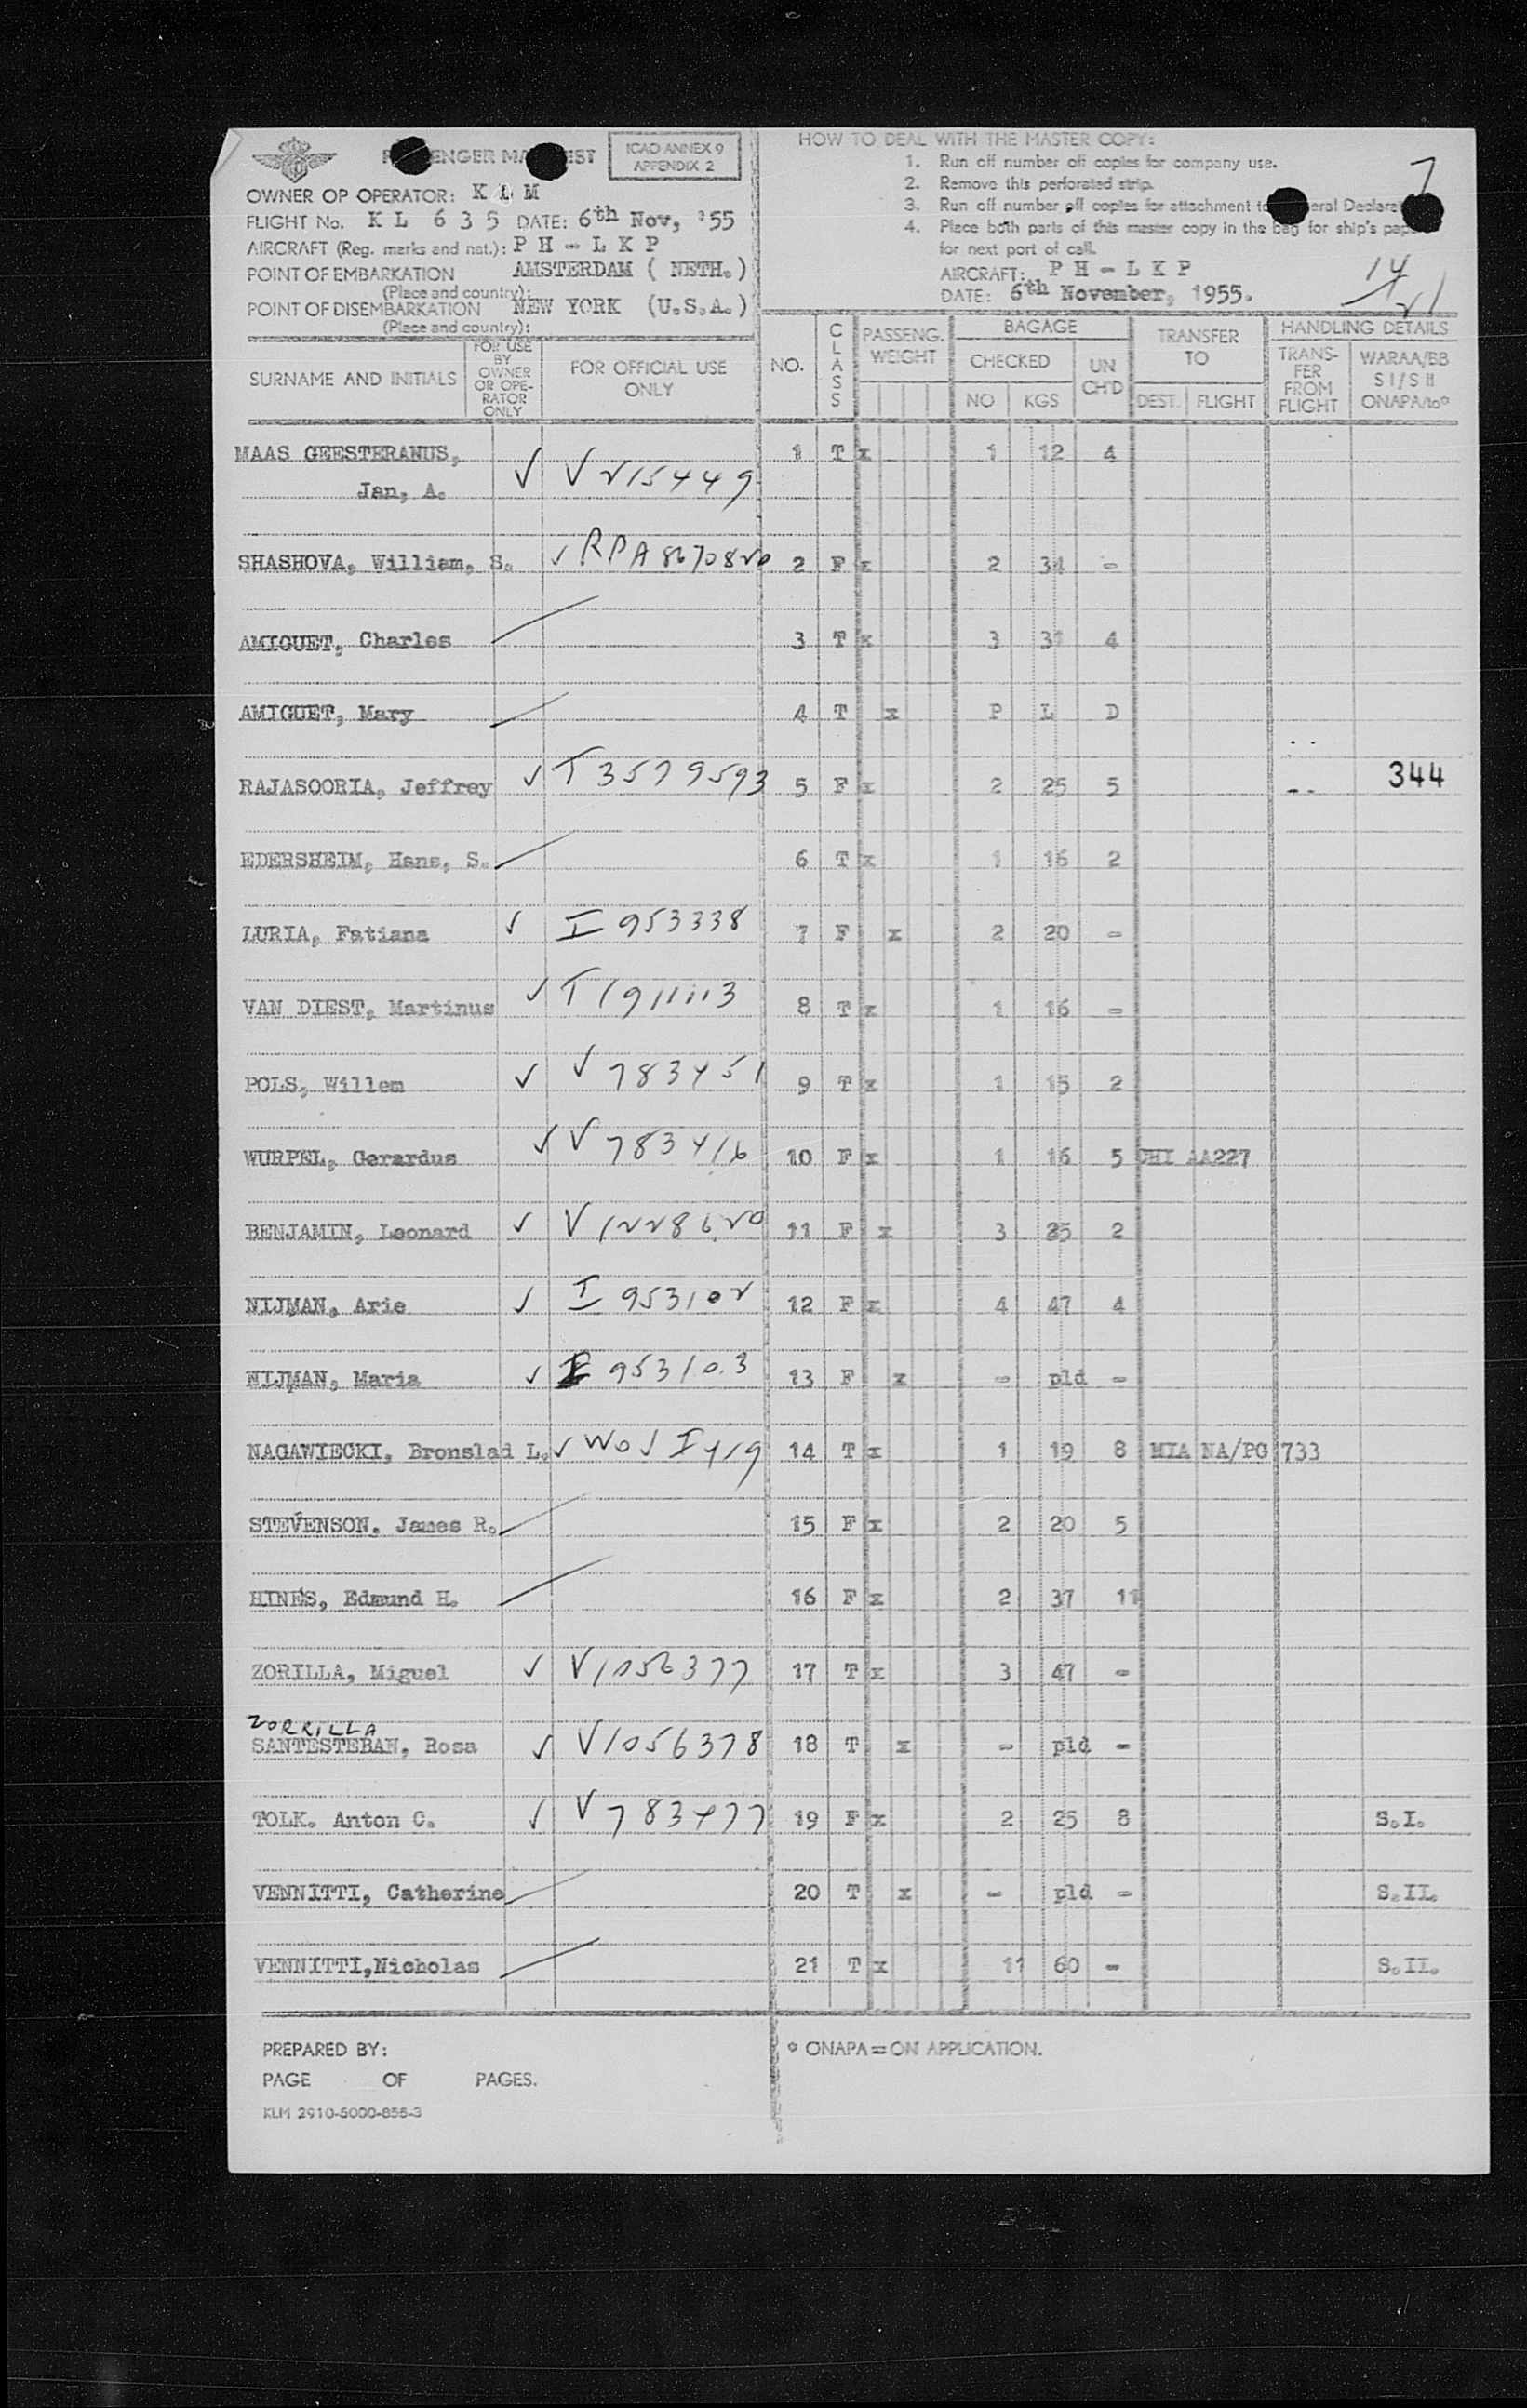 PASSENGER MANIFEST
ICAO ANNEX 9
APPENDIX 2
OWNER OP OPERATOR: K L M
FLIGHT No. K L 6 3 5 DATE: 6th Nov, '55
AIRCRAFT (Reg. marks and nat.): P H - L K P
POINT OF EMBARKATION AMSTERDAM ( NETH.)
(Place and country):
POINT OF DISEMBARKATION NEW YORK (U.S.A.)
(Place and country):
HOW TO DEAL WITH THE MASTER COPY:
1. Run off number off copies for company use.
2. Remove this perforated strip.
3. Run off number off copies for attachment to eral Declarat
4. Place both parts of this master copy in the bag for ship's pap
for next port of call.
AIRCRAFT: P H - L K P
DATE: 6th November, 1955.
7
14
21
SURNAME AND INITIALS
FOR USE BY OWNER OR OPE-RATOR ONLY
FOR OFFICIAL USE ONLY
NO. CLASS PASSENG. WEIGHT
BAGAGE CHECKED NO KGS UN CH'D
TRANSFER TO DEST. FLIGHT
HANDLING DETAILS TRANS-FER FROM FLIGHT WARAA/BB S I/S II ONAPA/to*
MAAS GEESTERANUS, √ V 215449 1 T x 1 12 4
Jan, A.
SHASHOVA, William, S. √ RPA 8670820 2 F x 2 34 -
AMIGUET, Charles 3 T x 3 31 4
AMIGUET, Mary 4 T x P L D
RAJASOORIA, Jeffrey √ T 3579593 5 F x 2 25 5 344
EDERSHEIM, Hans, S. 6 T x 1 16 2
LURIA, Fatiana √ I 953338 7 F x 2 20 -
VAN DIEST, Martinus √ T 1911113 8 T x 1 16 -
POLS, Willem √ V 783451 9 T x 1 15 2
WURPEL, Gerardus √ V 783416 10 F x 1 16 5 CHI AA227
BENJAMIN, Leonard √ V 1228620 11 F x 3 35 2
NIJMAN, Arie √ I 953102 12 F x 4 47 4
NIJMAN, Maria √ I 953103 13 F x - pld -
NAGAWIECKI, Bronslad L. √ 14 T x 1 19 8 MIA NA/PG 733
STEVENSON. James R. 15 F x 2 20 5
HINES, Edmund H. 16 F x 2 37 11
ZORILLA, Miguel √ V1056377 17 T x 3 47 -
ZORRILLA
SANTESTEBAN, Rosa √ V1056378 18 T x - pld -
TOLK. Anton C. √ V 783477 19 F x 2 25 8 S.I.
VENNITTI, Catherine 20 T x - pld - S.II.
VENNITTI,Nicholas 21 T x 11 60 - S.II.
PREPARED BY:
PAGE OF PAGES.
KLM 2910-5000-855-3
* ONAPA = ON APPLICATION.